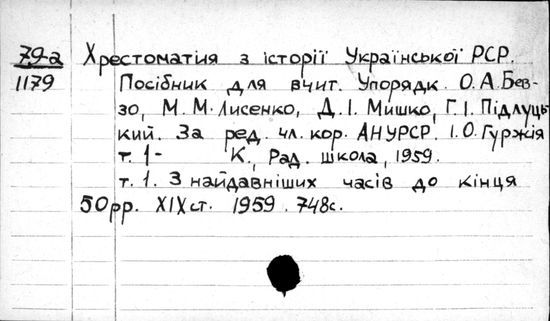 79-а Хрестоматия з історії Української РСР.
1179 Посібник для вчит. Упорядк. О.А.Бев-
зо, М.М.Лисенко, Д.І.Мишко, Г.І.Підлуць-
кий. За ред. чл. кор. АНУРСР. І.О.Гуржія
т. 1- К., Рад. школа, 1959.
т. 1. З найдавніших часів до кінця
50рр. XIX ст. 1959. 748с.